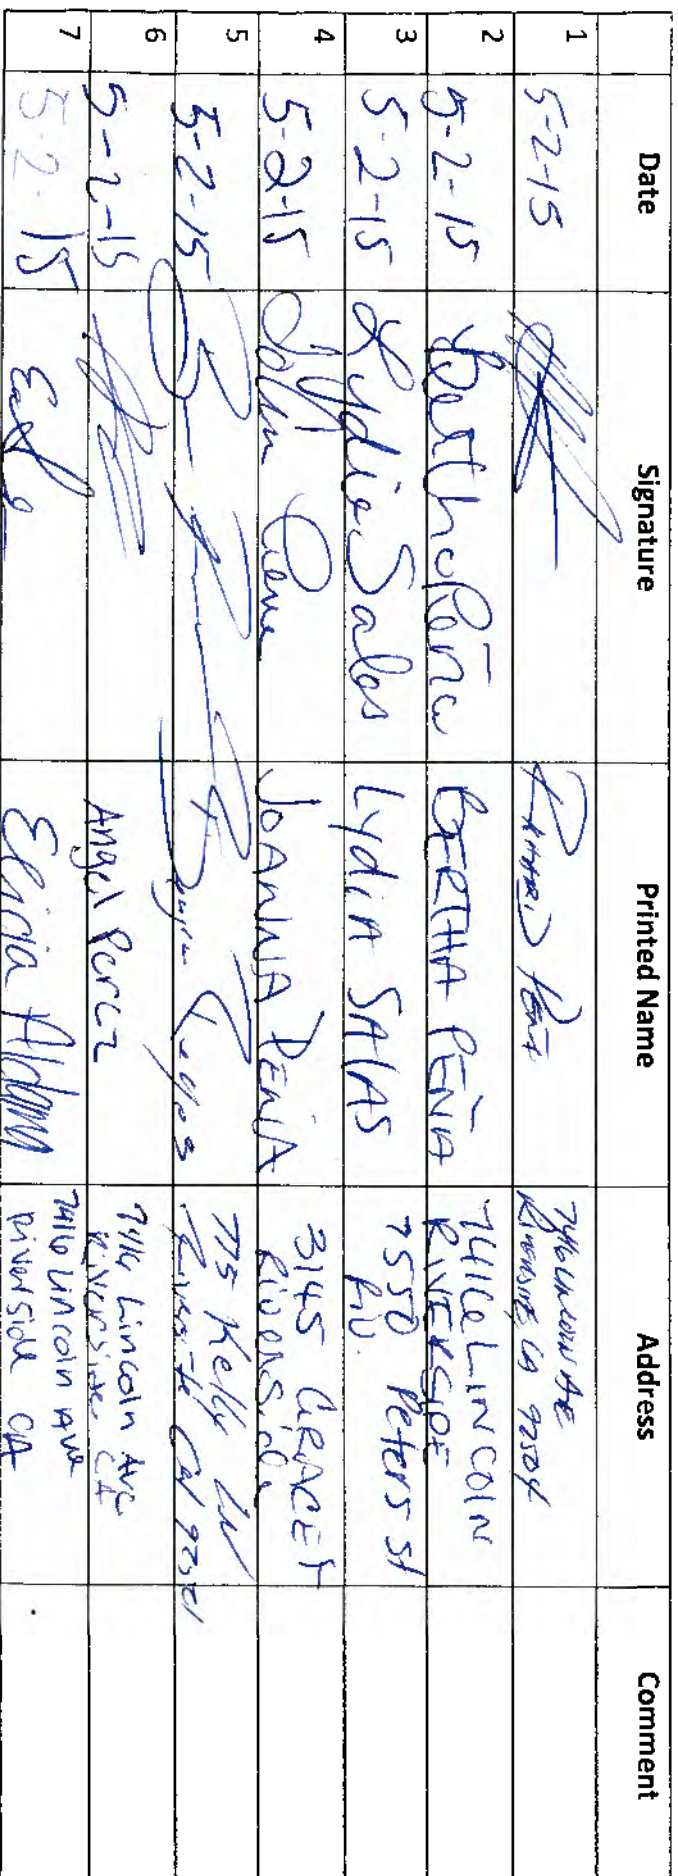 Date Signature Printed Name Address Comment
1 5-2-15 Peña 7416 Lincoln Ave
Riverside CA 92504
2 5-2-15 Bertha Peña BERTHA PEÑA 7416 LINCOLN
RIVERSIDE
3 5-2-15 Lydia Salas LydiA SALAS 7550 Peters St
Riv.
4 5-2-15 JOANNA PEÑA 3145
Riverside
5 5-2-15 775 Kelly LN
Cal
6 5-2-15 Angel Perez 7416 Lincoln Ave
Riverside CA
7 5-2-15 Elicia 7416 Lincoln Ave
Riverside CA